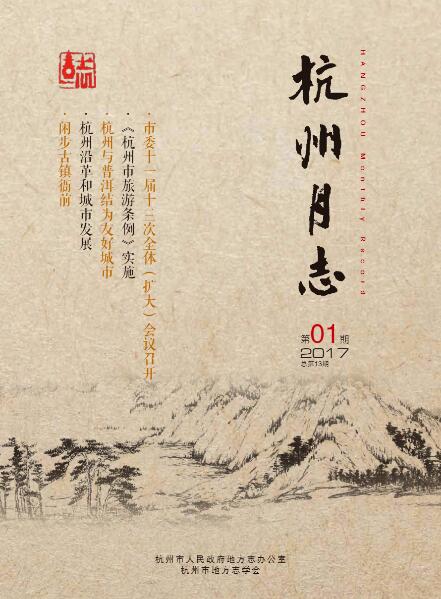 杭州月志
HANGZHOU Monthly Record
第01期
2017
总第13期
·市委十一届十三次全体（扩大）会议召开
·《杭州市旅游条例》实施
·杭州与普洱结为友好城市
·杭州沿革和城市发展
·闲步古镇衙前
杭州市人民政府地方志办公室
杭州市地方志学会